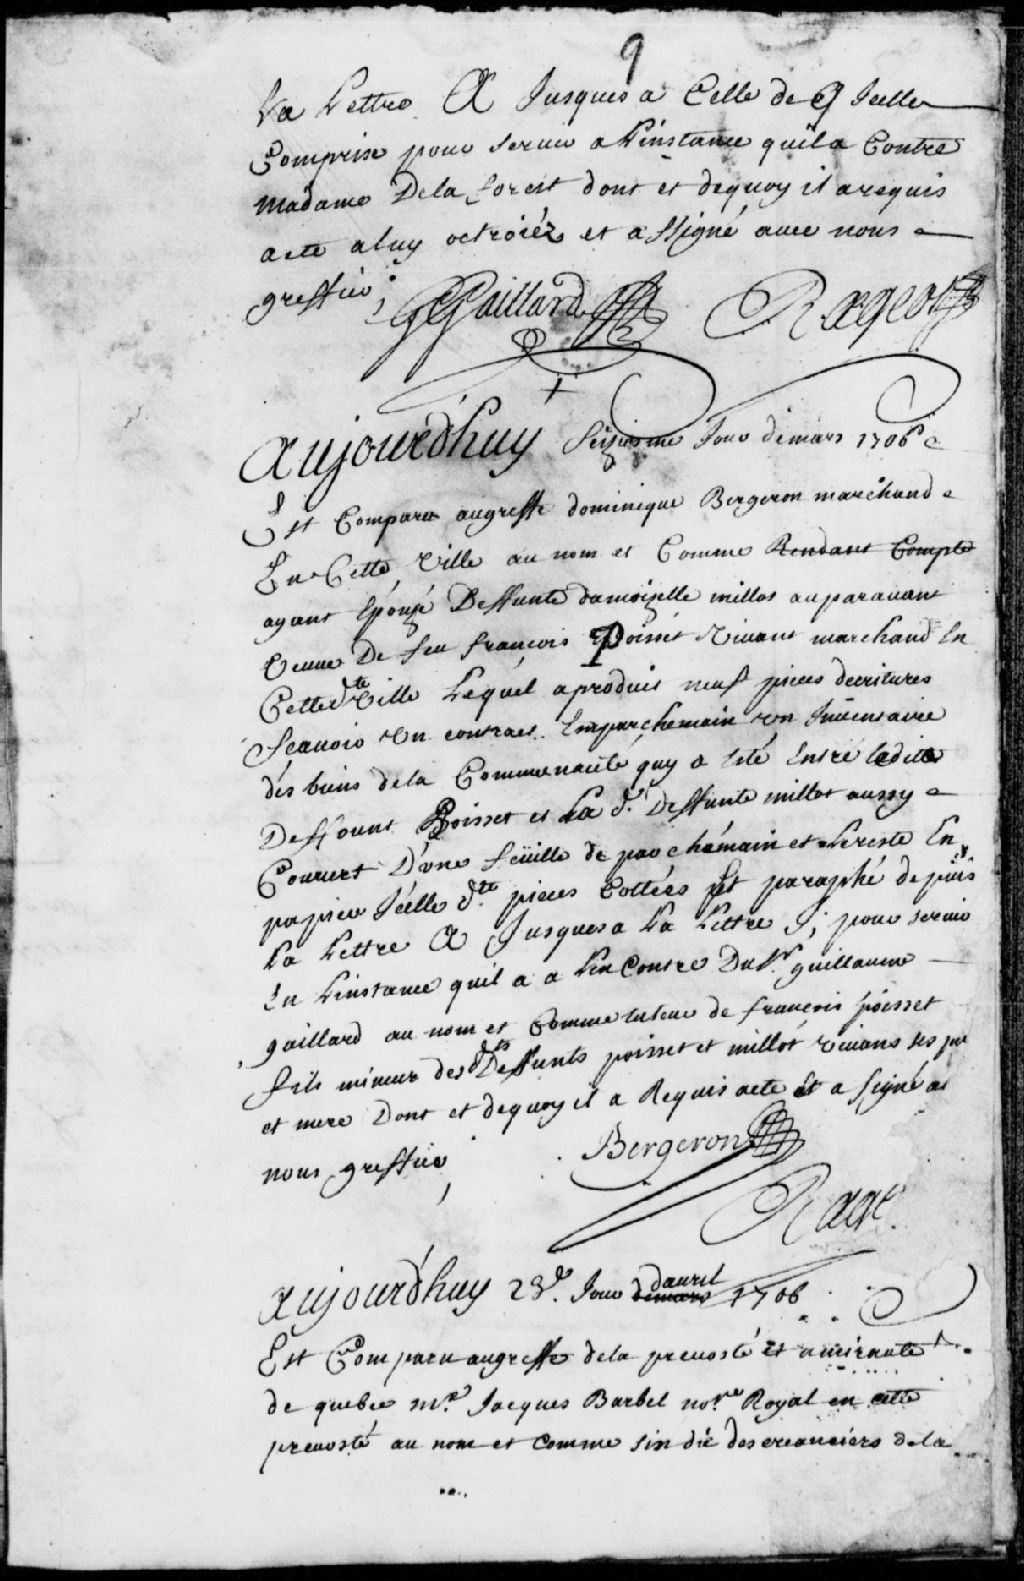 9
La Lettre A Jusques a Celle de G Icelle
Comprise pour seruir a Linstance quil a Contre
madame De la forest dont et dequoy il a requis
acte a luy octroiéz et a ssigné auec nous
greffier
GGaillard Rageot
aujourd'huy Seiziesme Jour de mars 1706
Est Comparu au greffe dominique Bergeron marchand
En Cette ville au nom et Comme Rendant Compte
ayant Epouzé Deffunte damoizelle millot auparauant
veuue De feu françois Poisset viuant marchand En
Cette dte ville Lequel a produit neuf pieces decritures
Scauoir vn contract En parchemain vn Inuentaire
dés biens de la Communauté quy a Esté Entre ledit
Deffount Poisset et La de. Deffunte millot aussy
Couuert D'vne feüille de parchémain et Le reste En
papier Icelle dte. pieces Cottées Et paraphé depuis
La Lettre A Jusques a La Lettre J, pour seruir
En Linstance quil a a Lencontre Du Sr. guillaume
gaillard au nom et Comme tuteur de françois poisset
fils mineur des dts Deffunts poisset et millot viuans ses pe
et mere Dont et dequoy il a Requis acte Et a signé a
nous greffier
Bergeron
Rage
aujourd'huy 28e. Jour de mars d'auril 1706
Est Comparu au greffe de la preuosté et amirauté
de quebec me. Jacques Barbel nore. Royal en cette
preuosté au nom et comme sindic des creanciers de la